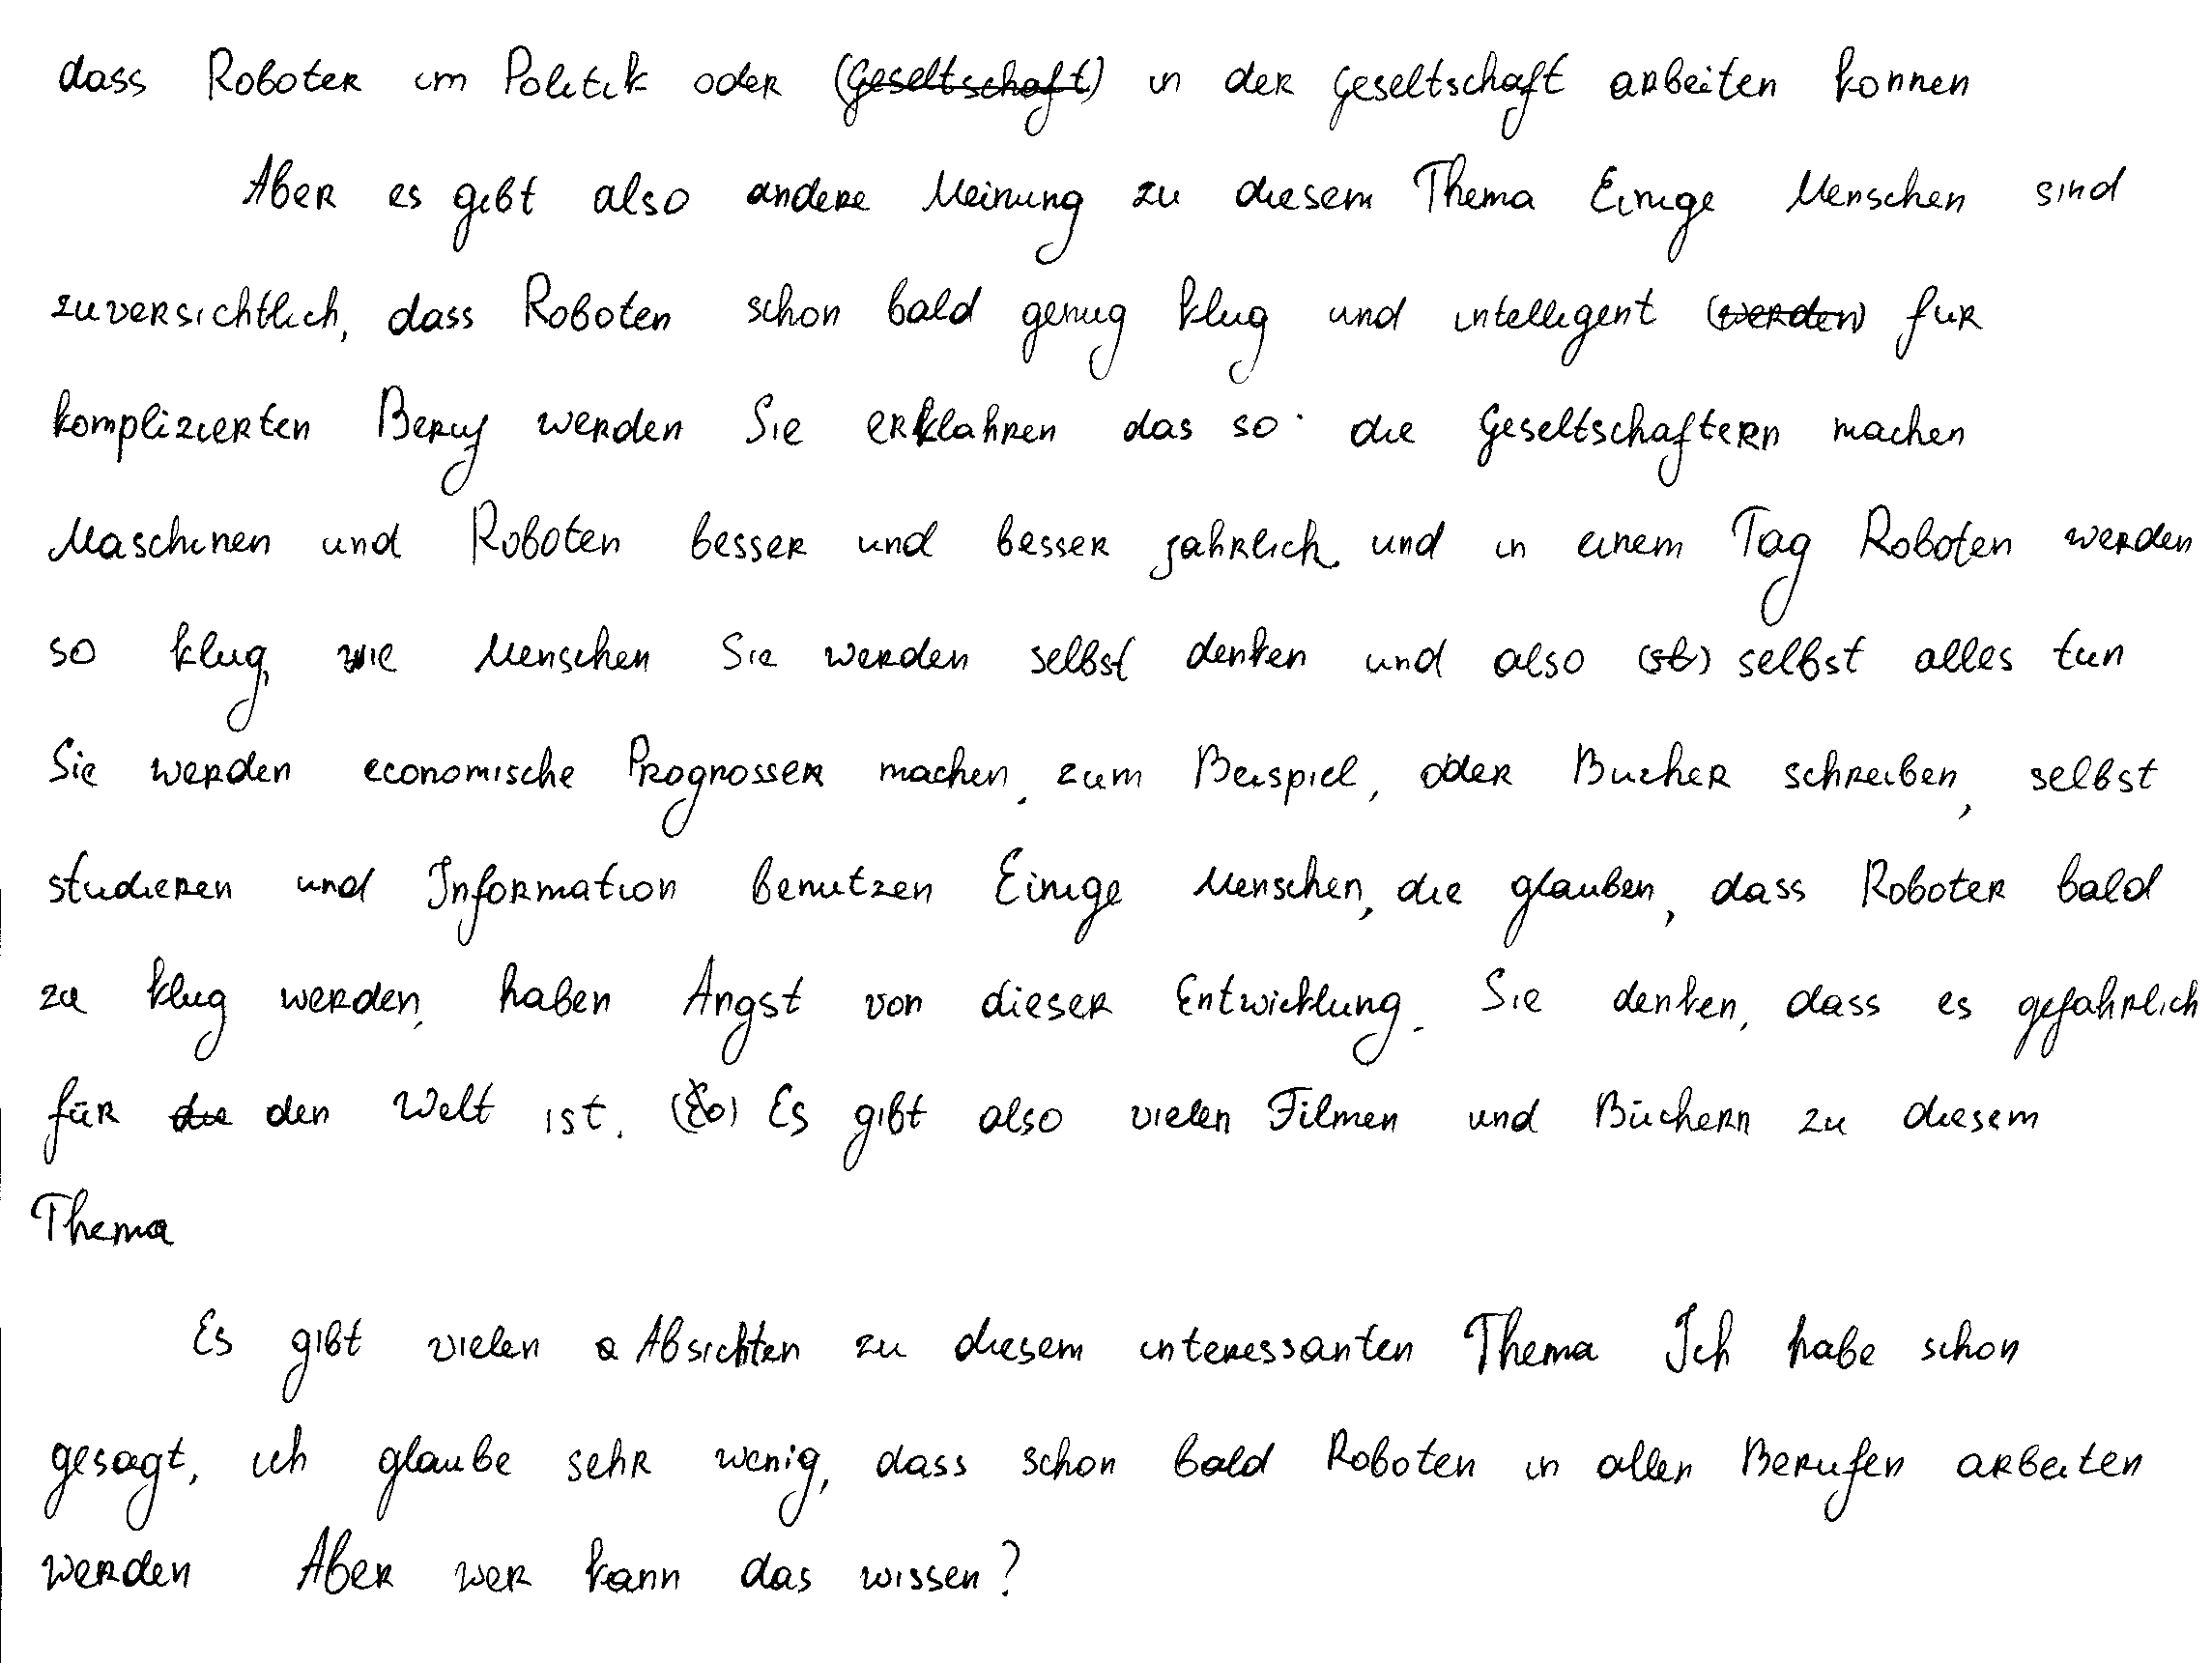 dass Roboter im Politik oder (Geseltschaft) in der Geseltschaft arbeiten konnen
Aber es gibt also andere Meinung zu diesem Thema Einige Menschen sind
zuversichtlich, dass Roboten schon bald genug klug und intelligent (werden) fur
komplizierten Beruf werden Sie erklahren das so. die Geseltschaftern machen
Maschinen und Roboten besser und besser jahrlich. und in einem Tag Roboten werden
so klug, wie Menschen Sie werden selbst denken und also (st) selbst alles tun
Sie werden economische Prognossen machen, zum Beispiel, oder Bucher schreiben, selbst
studieren und Information benutzen Einige Menschen, die glauben, dass Roboter bald
zu klug werden, haben Angst von dieser Entwicklung. Sie denken, dass es gefahrlich
für die den Welt ist. (Eo) Es gibt also vielen Filmen und Büchern zu diesem
Thema
Es gibt vielen a Absichten zu diesem interessanten Thema Ich habe schon
gesagt, ich glaube sehr wenig, dass schon bald Roboten in allen Berufen arbeiten
werden Aber wer kann das wissen?